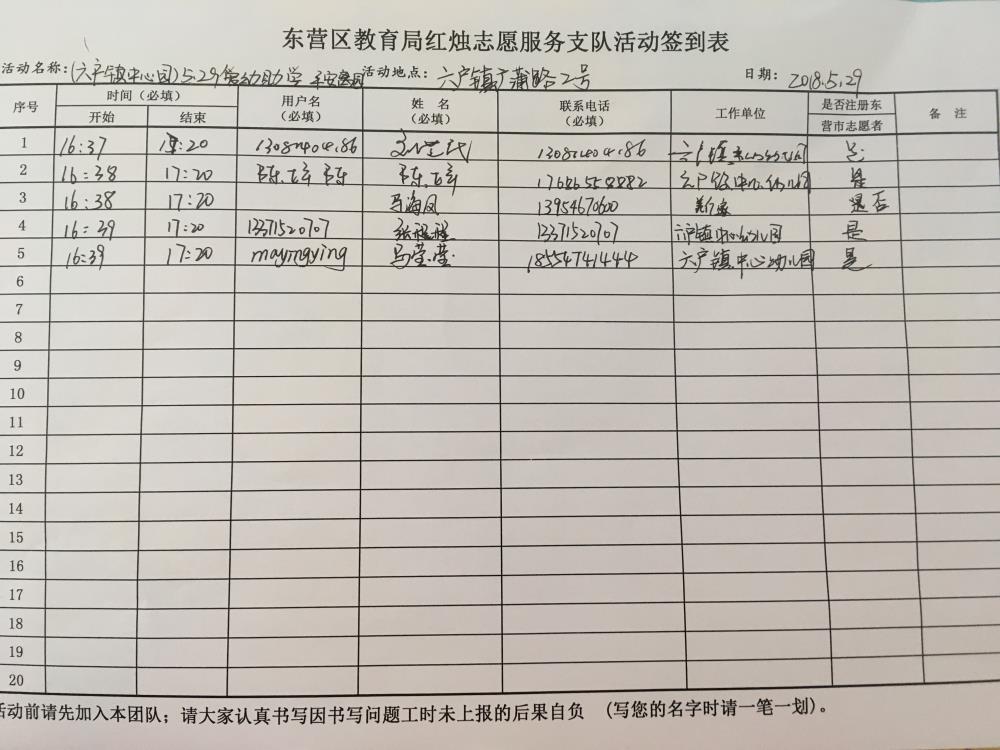 东营区教育局红烛志愿服务支队活动签到表
活动名称:(六户镇中心园)5.29 助学 活动地点: 六户镇广蒲路2号 日期: 2018.5.29
序号 时间（必填） 用户名（必填） 姓 名（必填） 联系电话（必填） 工作单位 是否注册东营市志愿者 备 注
开始 结束
1 16:37 17:20 六户镇中心幼儿园 是
2 16:38 17:20 17686558882 六户镇中心幼儿园 是
3 16:38 17:20 马海凤 13954670600 是否
4 16:39 17:20 13371520707 张程程 13371520707 六户镇中心幼儿园 是
5 16:39 17:20 mayingying 马莹莹 18554741444 六户镇中心幼儿园 是
6
7
8
9
10
11
12
13
14
15
16
17
18
19
20
活动前请先加入本团队；请大家认真书写因书写问题工时未上报的后果自负 （写您的名字时请一笔一划）。